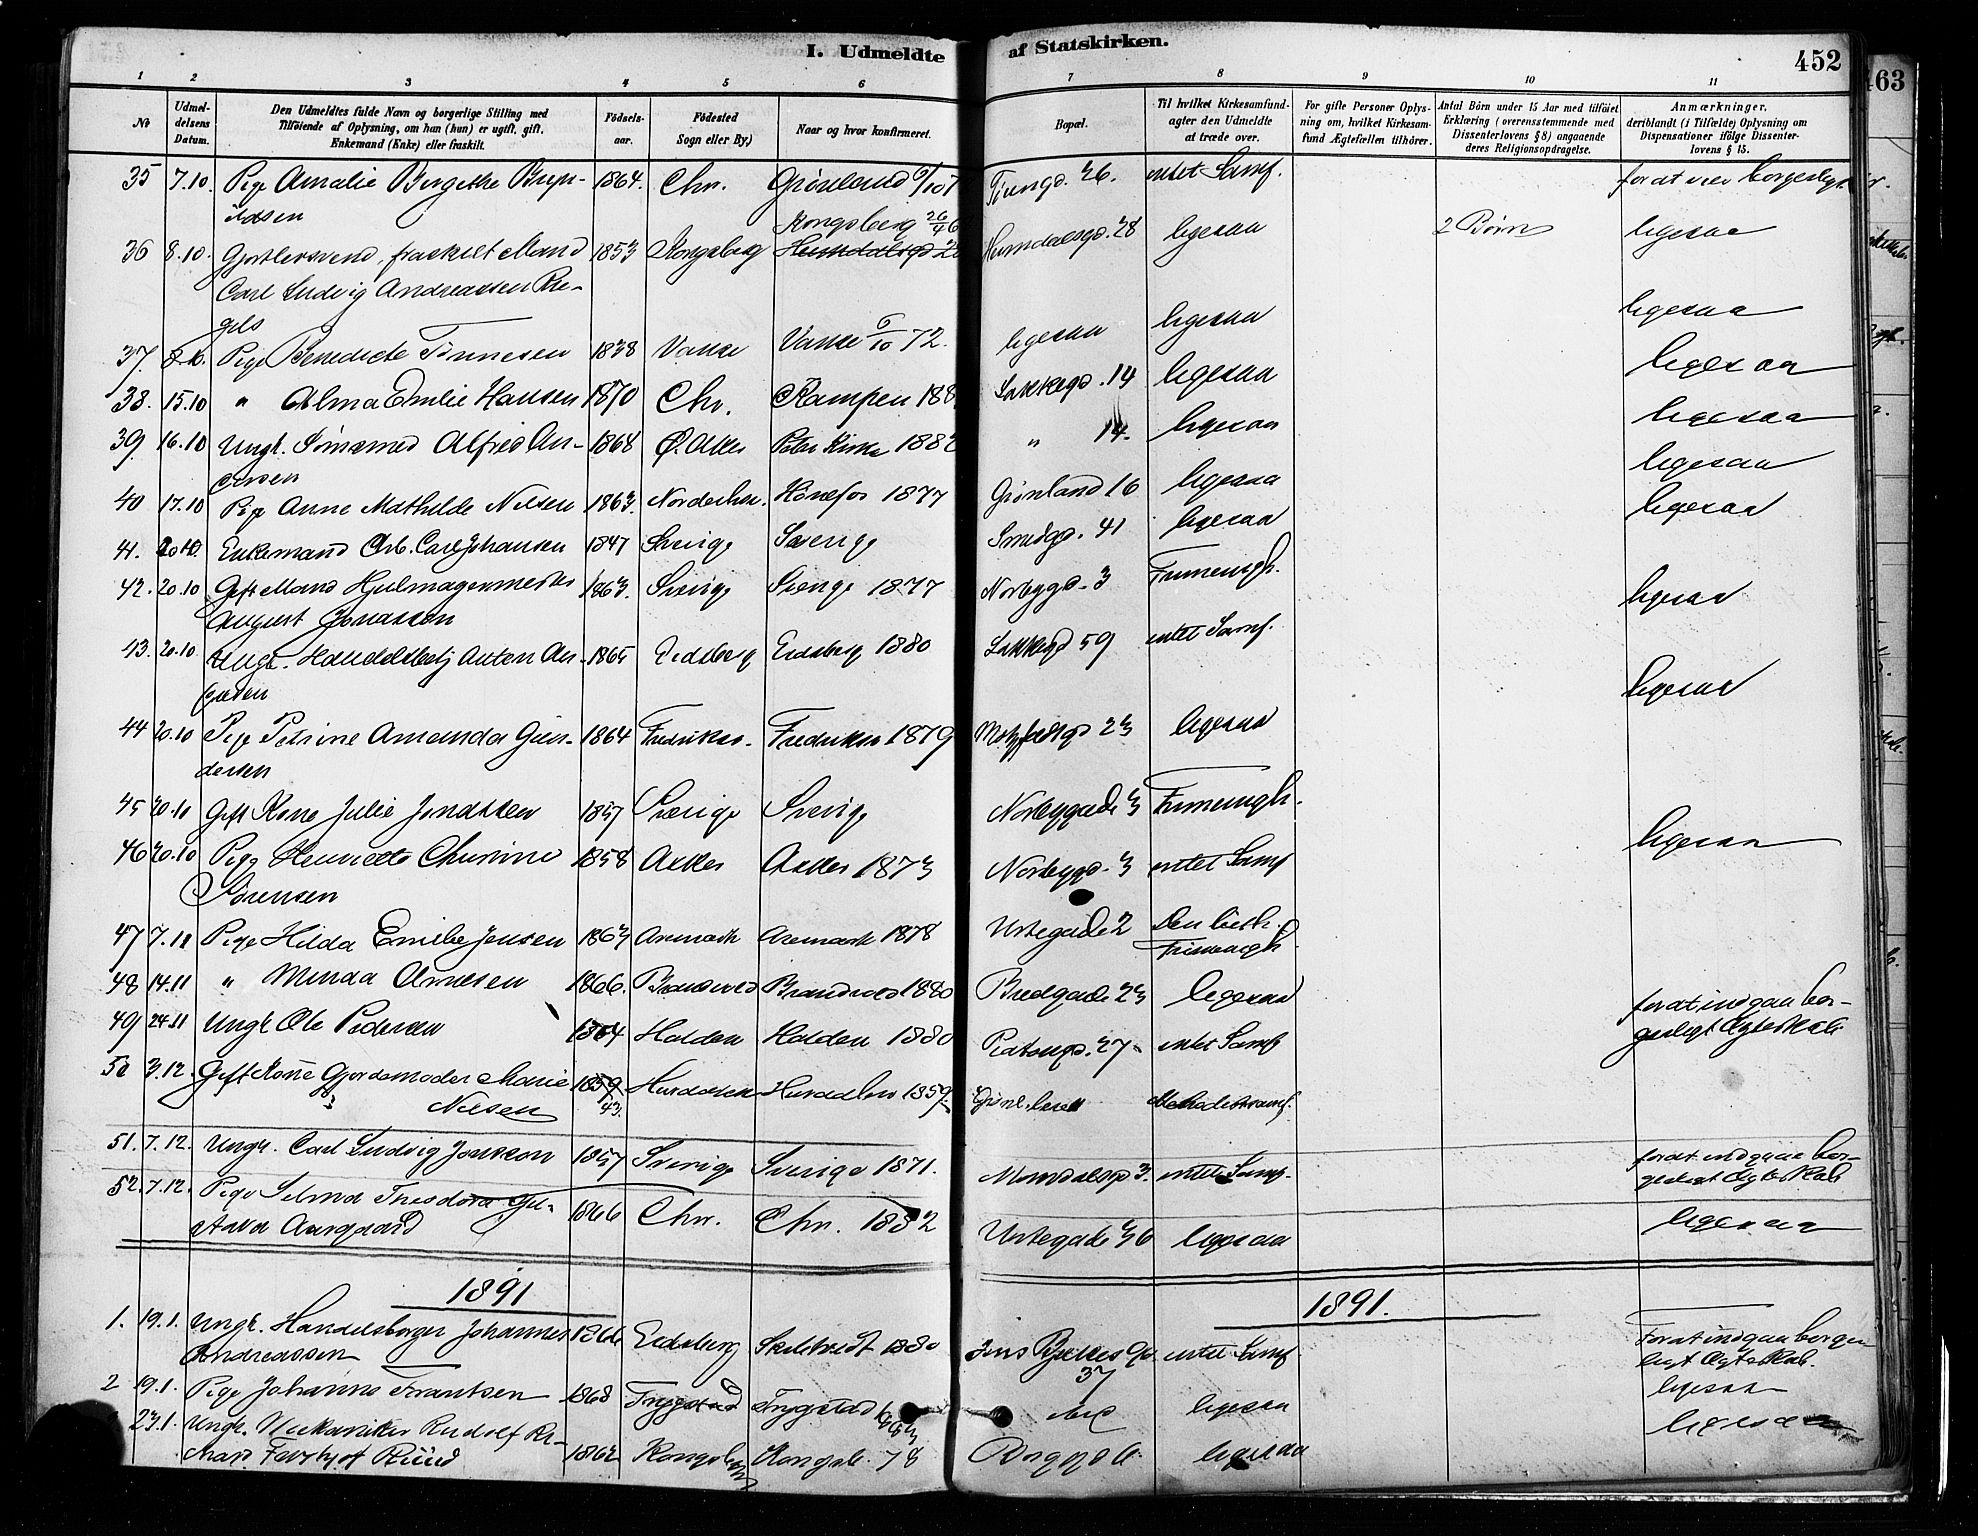 I. Udmeldte af Statskirken. 452
463
1 2 3 4 5 6 7 8 9 10 11
No
Udmeldelsens Datum.
Den Udmeldtes fulde Navn og borgerlige Stilling med
Tilføiende af Oplysning, om han (hun) er ugift, gift,
Enkemand (Enke) eller fraskilt.
Fødselsaar.
Fødested
Sogn eller By.)
Naar og hvor konfirmeret.
Bopæl.
Til hvilket Kirkesamfund
agter den Udmeldte
at træde over.
For gifte Personer Oplysning
om, hvilket Kirkesamfund
Ægtefællen tilhører.
Antal Børn under 15 Aar med tilføiet
Erklæring (overensstemmende med
Dissenterlovens § 8) angaaende
deres Religionsopdragelse.
Anmærkninger,
deriblandt (i Tilfælde) Oplysning om
Dispensationer ifølge Dissenterlovens § 15.
35 7.10. Pige Amalie Bergethe 1864. Chr. Grønland 26. intet Samf.
Kongsberg 26/4
36 8.10. Gjørtlersvend, fraskilt Mand 1853 Kongsberg 28 ligesaa 2 Børn ligesaa
Carl Ludvig Andreassen
37. 8.10. Pige Benedicte Tønnesen 1838 Vanse Vanse 6/10 72. ligesaa ligesaa ligesaa
38. 15.10 " Alma Emilie Hansen 1870 Chr. Kampen Lakkegd. 14 ligesaa ligesaa
39 16.10 Ungk. Alfred An- 1868 Ø. Aker Petri Kirke 188 " 14. ligesaa ligesaa
dersen
40 17.10 Pige Anne Mathilde Nilsen 1863. Norderhov. Hønefos 1877 Grønland 16 ligesaa ligesaa
41. 20.10. Enkemand Arb. Carl Johansen 1847 Sverige Sverige Smedgd. 41 ligesaa ligesaa
42. 20.10 Gift Mand Hjulmagermester 1863. Sverige Sverige 1877 Norbygd. 3 Frimenigh.
August Jonassen
43. 20.10 Ungk. Handelsbetj Anton An- 1865 Eidsberg Eidsberg 1880 Lakkegd 59 intet Samf. ligesaa
44 20.10 Pige Petrine Amanda Gun- 1864 Fredriksh. Fredriksh 1879 Motzfeldtsgd 23 ligesaa ligesaa
dersen
45 20.10 Gift Kone Julie Jonassen 1857 Sverige Sverige Norbygade 3 Frimenigh.
46 20.10 Pige Henriette Christine 1858 Asker Asker 1873 Norbygd. 3 intet Samf ligesaa
Sørensen
47 7.11 Pige Hilda Emilie Jensen 1863 Aremark Aremark 1878 Urtegade 2 Den luth.
Frimenigh.
48 14.11 " Minda Arnesen 1866. Brandvold Brandvold 1880 Bredgade 23 ligesaa
49 24.11 Ungk. Ole Pedersen 1864 Halden Halden 1880 Platousgd. 27 intet Samf for at indgaa bor-
gerligt Ægteskab
50 3.12. Gift Kone Gjordemoder Marie 1859 Hurdalen Hurdalen 1859. Grønl. Methodistsamf.
Nilsen 43.
51. 7.12. Ungk. Carl Ludvig Jonsson 1857 Sverige Sverige 1871. 3. intet Samf. for at indgaa bor-
gerligt Ægteskab
52. 7.12. Pige Selma Theodora Gu- 1866 Chr. Chr. 1882 Urtegade 36 ligesaa ligesaa
stava Aargaard
1891 1891.
1. 19.1. Ungk. Handelsborger Johannes 1866 Eidsberg 1880 Jens Bjelkes Gd. intet Samf. For at indgaa borger-
Andreassen 37 ligt Ægteskab.
2 19.1. Pige Johanne Frantsen 1868 Trygstad Trygstad ligesaa ligesaa
23.1. Ungk. Mekaniker Rudolf Ri- 1862 Kongsberg Kongsb. 78 ligesaa ligesaa